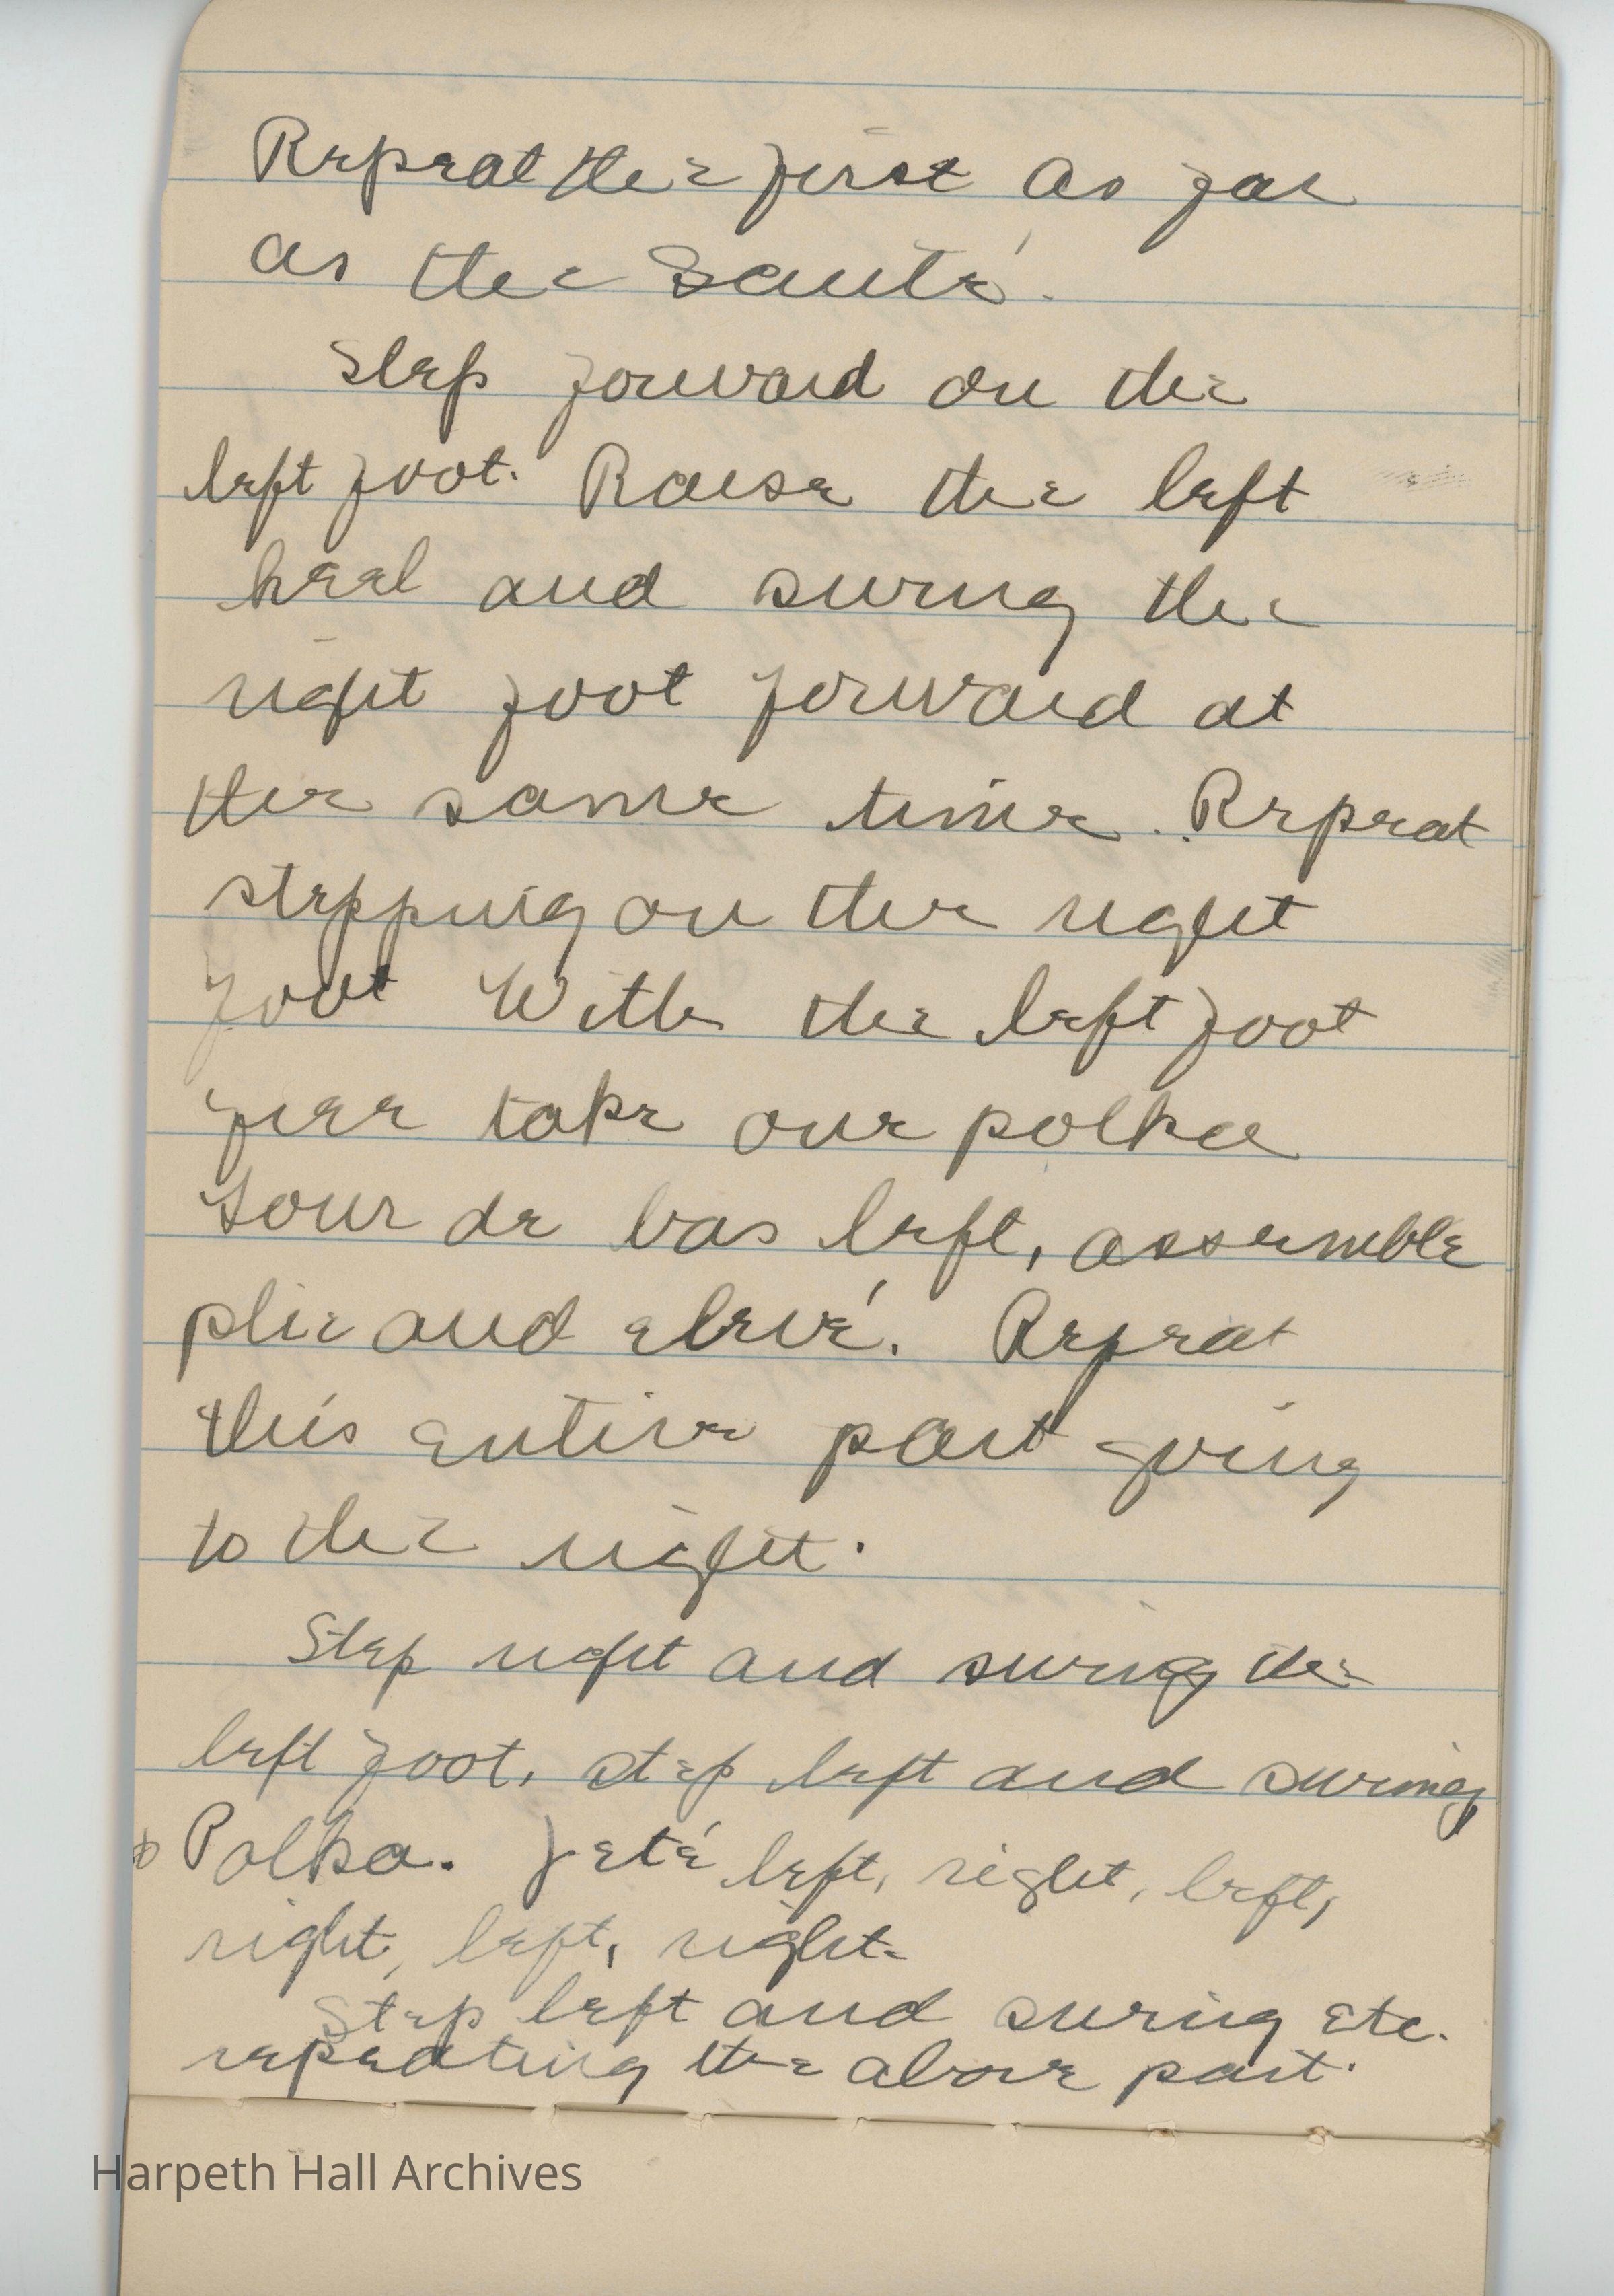 Repeat the first as far
as the Sauté.
Step forward on the
left foot. Raise the left
heel and swing the
right foot forward at
the same time. Repeat
stepping on the right
foot With the left foot
free take one polka
Tour de bas left, assemble
plie and elevé. Repeat
this entire part going
to the right.
Step right and swing the
left foot, step left and swing,
Polka. Jeté left, right, left,
right, left, right.
Step left and swing etc.
repeating the above part.
Harpeth Hall Archives